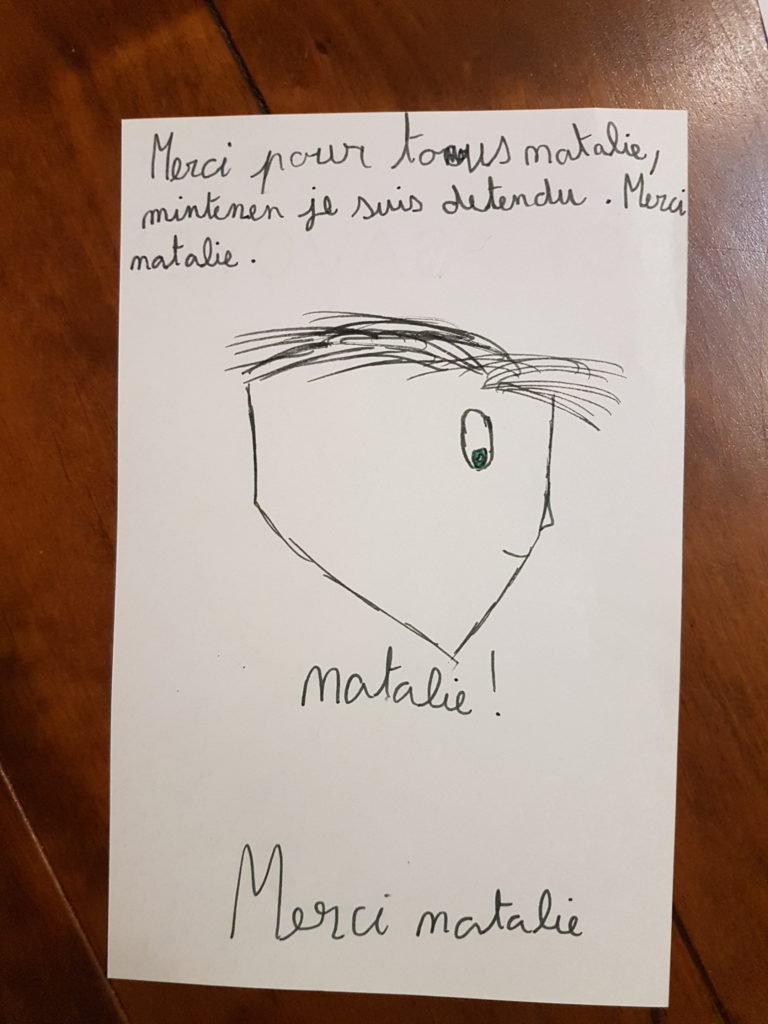 Merci pour tous natalie,
mintenen je suis detendu. Merci
natalie.
natalie!
Merci natalie